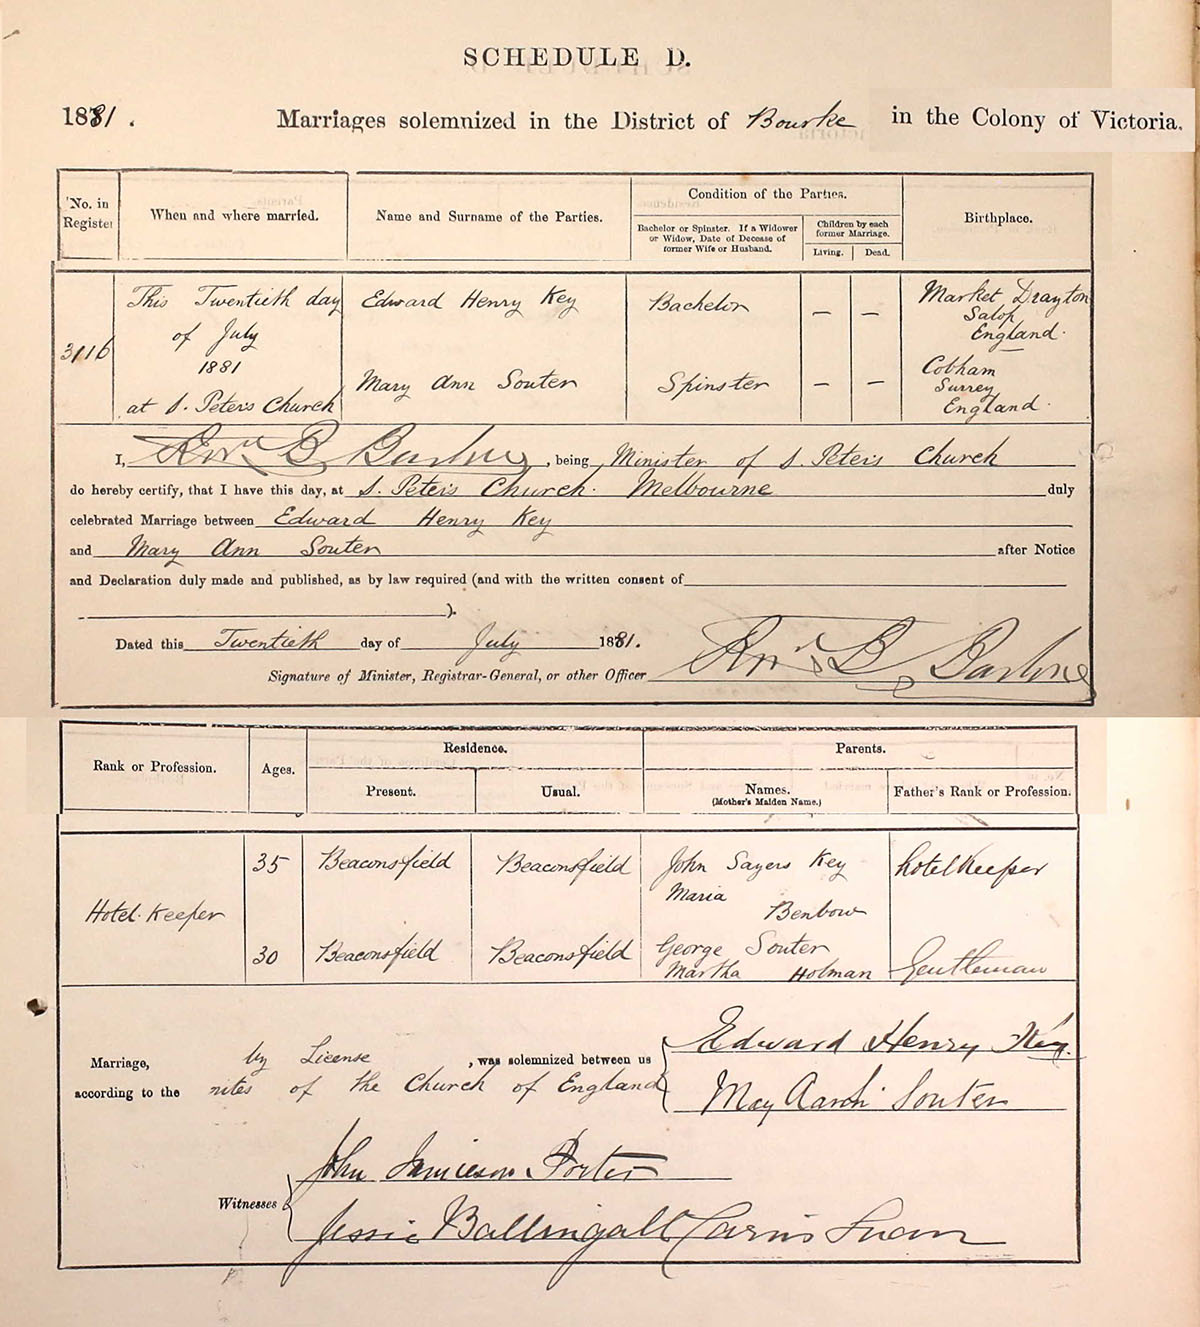 SCHEDULE D.
1881. Marriages solemnized in the District of Bourke in the Colony of Victoria.
No. in Register
When and where married.
Name and Surname of the Parties.
Condition of the Parties.
Bachelor or Spinster. If a Widower or Widow, Date of Decease of former Wife or Husband.
Children by each former Marriage.
Living. Dead.
Birthplace.
3116
This Twentieth day
of July
1881
at S. Peter's Church
Edward Henry Key
Bachelor
— —
Market Drayton
Salop
England.
Mary Ann Souter
Spinster
— —
Cobham
Surrey
England.
I, Rev. B , being Minister of S. Peter's Church
do hereby certify, that I have this day, at S. Peter's Church. Melbourne duly
celebrated Marriage between Edward Henry Key
and Mary Ann Souter after Notice
and Declaration duly made and published, as by law required (and with the written consent of
).
Dated this Twentieth day of July 1881.
Signature of Minister, Registrar-General, or other Officer B
Rank or Profession.
Ages.
Residence.
Present. Usual.
Parents.
Names.
(Mother's Maiden Name.)
Father's Rank or Profession.
Hotel-Keeper
35 Beaconsfield Beaconsfield
John Sayers Key
Maria
Benbow
hotel Keeper
30 Beaconsfield Beaconsfield
George Souter
Martha Holman
Gentleman
Marriage, by License , was solemnized between us
according to the rites of the Church of England
Edward Henry Key.
Souter
Witnesses
John Jamieson Porter
Jessie Ballingall